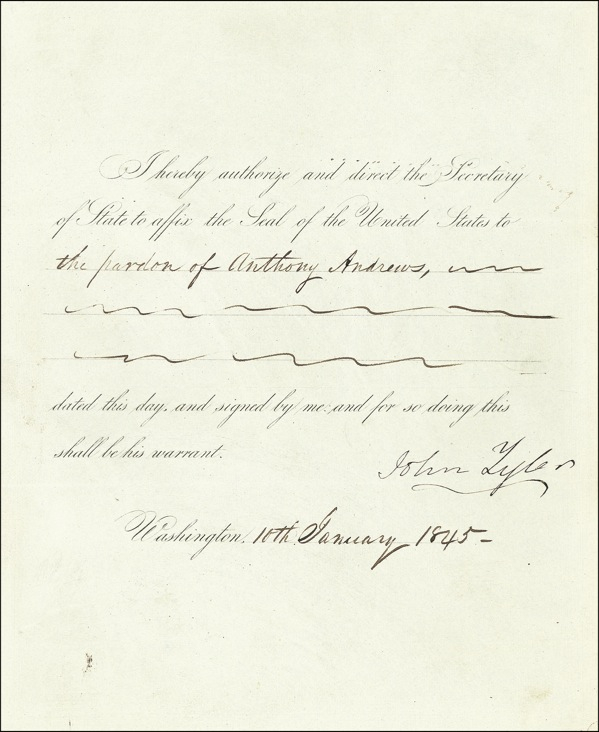 I hereby authorize and direct the Secretary
of State to affix the Seal of the United States to
the pardon of Anthony Andrews,
dated this day, and signed by me: and for so doing this
shall be his warrant.
John Tyler
Washington, 10th January 1845-